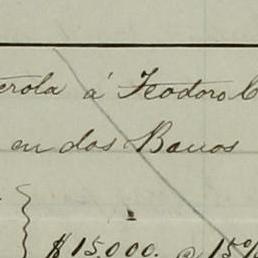 erola á Teodoro C
en dos Bauos
$15,000. @ 15%